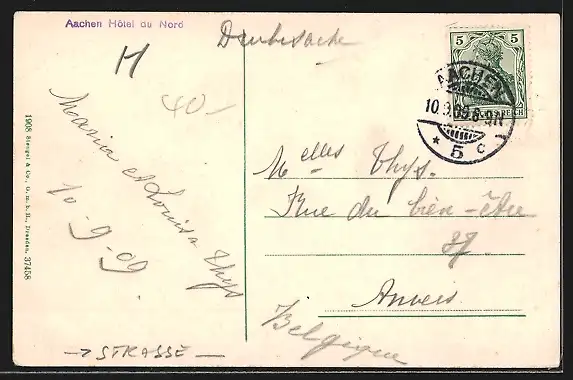 Aachen Hôtel du Nord
Drucksache
H
40.-
Maria et Louisa Thys
10-9-09
1908 Stengel & Co., G. m. b. H., Dresden. 37458
→ STRASSE —
5 5
REICH
AACHEN
10.9.09. 8-9N
* 5 c
Melles Thys.
Rue du bien-être
37
Anvers
Belgique